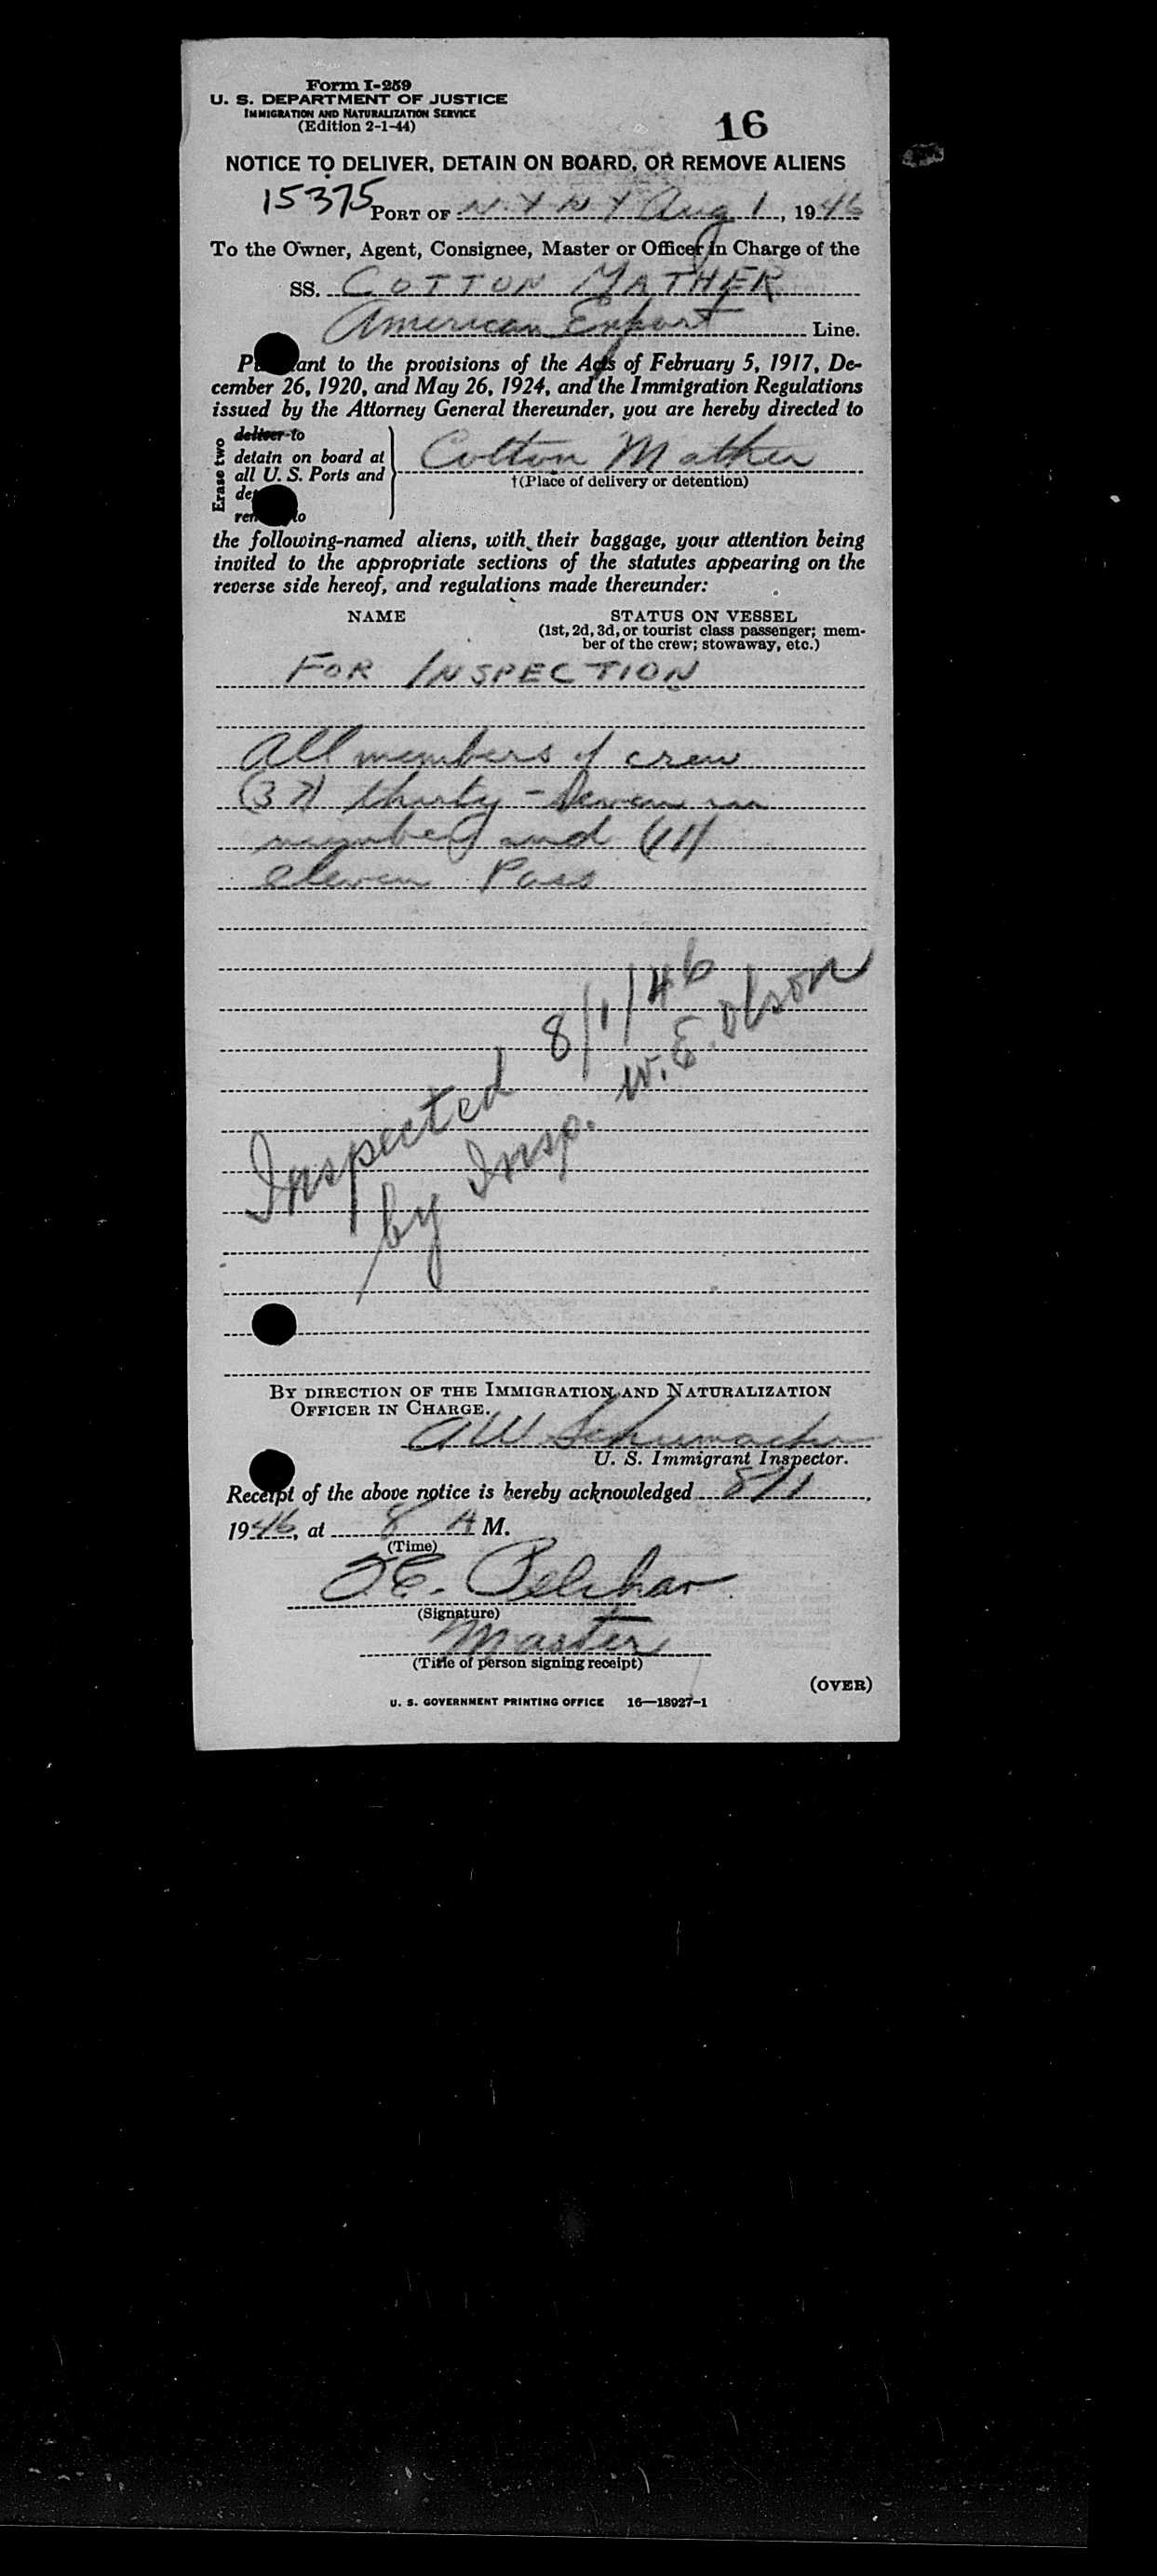 Form I-259
U. S. DEPARTMENT OF JUSTICE
IMMIGRATION AND NATURALIZATION SERVICE
(Edition 2-1-44)
16
NOTICE TO DELIVER, DETAIN ON BOARD, OR REMOVE ALIENS
15375
PORT OF N Y N Y Aug 1, 1946
To the Owner, Agent, Consignee, Master or Officer in Charge of the
SS. COTTON MATHER
American Export Line.
P ant to the provisions of the Acts of February 5, 1917, De-
cember 26, 1920, and May 26, 1924, and the Immigration Regulations
issued by the Attorney General thereunder, you are hereby directed to
Erase two
deliver to
detain on board at
all U. S. Ports and
de
rem to
Cotton Mather
†(Place of delivery or detention)
the following-named aliens, with their baggage, your attention being
invited to the appropriate sections of the statutes appearing on the
reverse side hereof, and regulations made thereunder:
NAME STATUS ON VESSEL
(1st, 2d, 3d, or tourist class passenger; mem-
ber of the crew; stowaway, etc.)
FOR INSPECTION
All members of crew
(37) thirty-seven in
number and (11)
eleven Pass
Inspected 8/1/46
by Insp. W. E. Olson
BY DIRECTION OF THE IMMIGRATION AND NATURALIZATION
OFFICER IN CHARGE.
A W Schumacher
U. S. Immigrant Inspector.
Receipt of the above notice is hereby acknowledged 8/1,
1946, at 8 A M.
(Time)
E.
(Signature)
Master
(Title of person signing receipt)
(OVER)
U. S. GOVERNMENT PRINTING OFFICE 16—18927-1